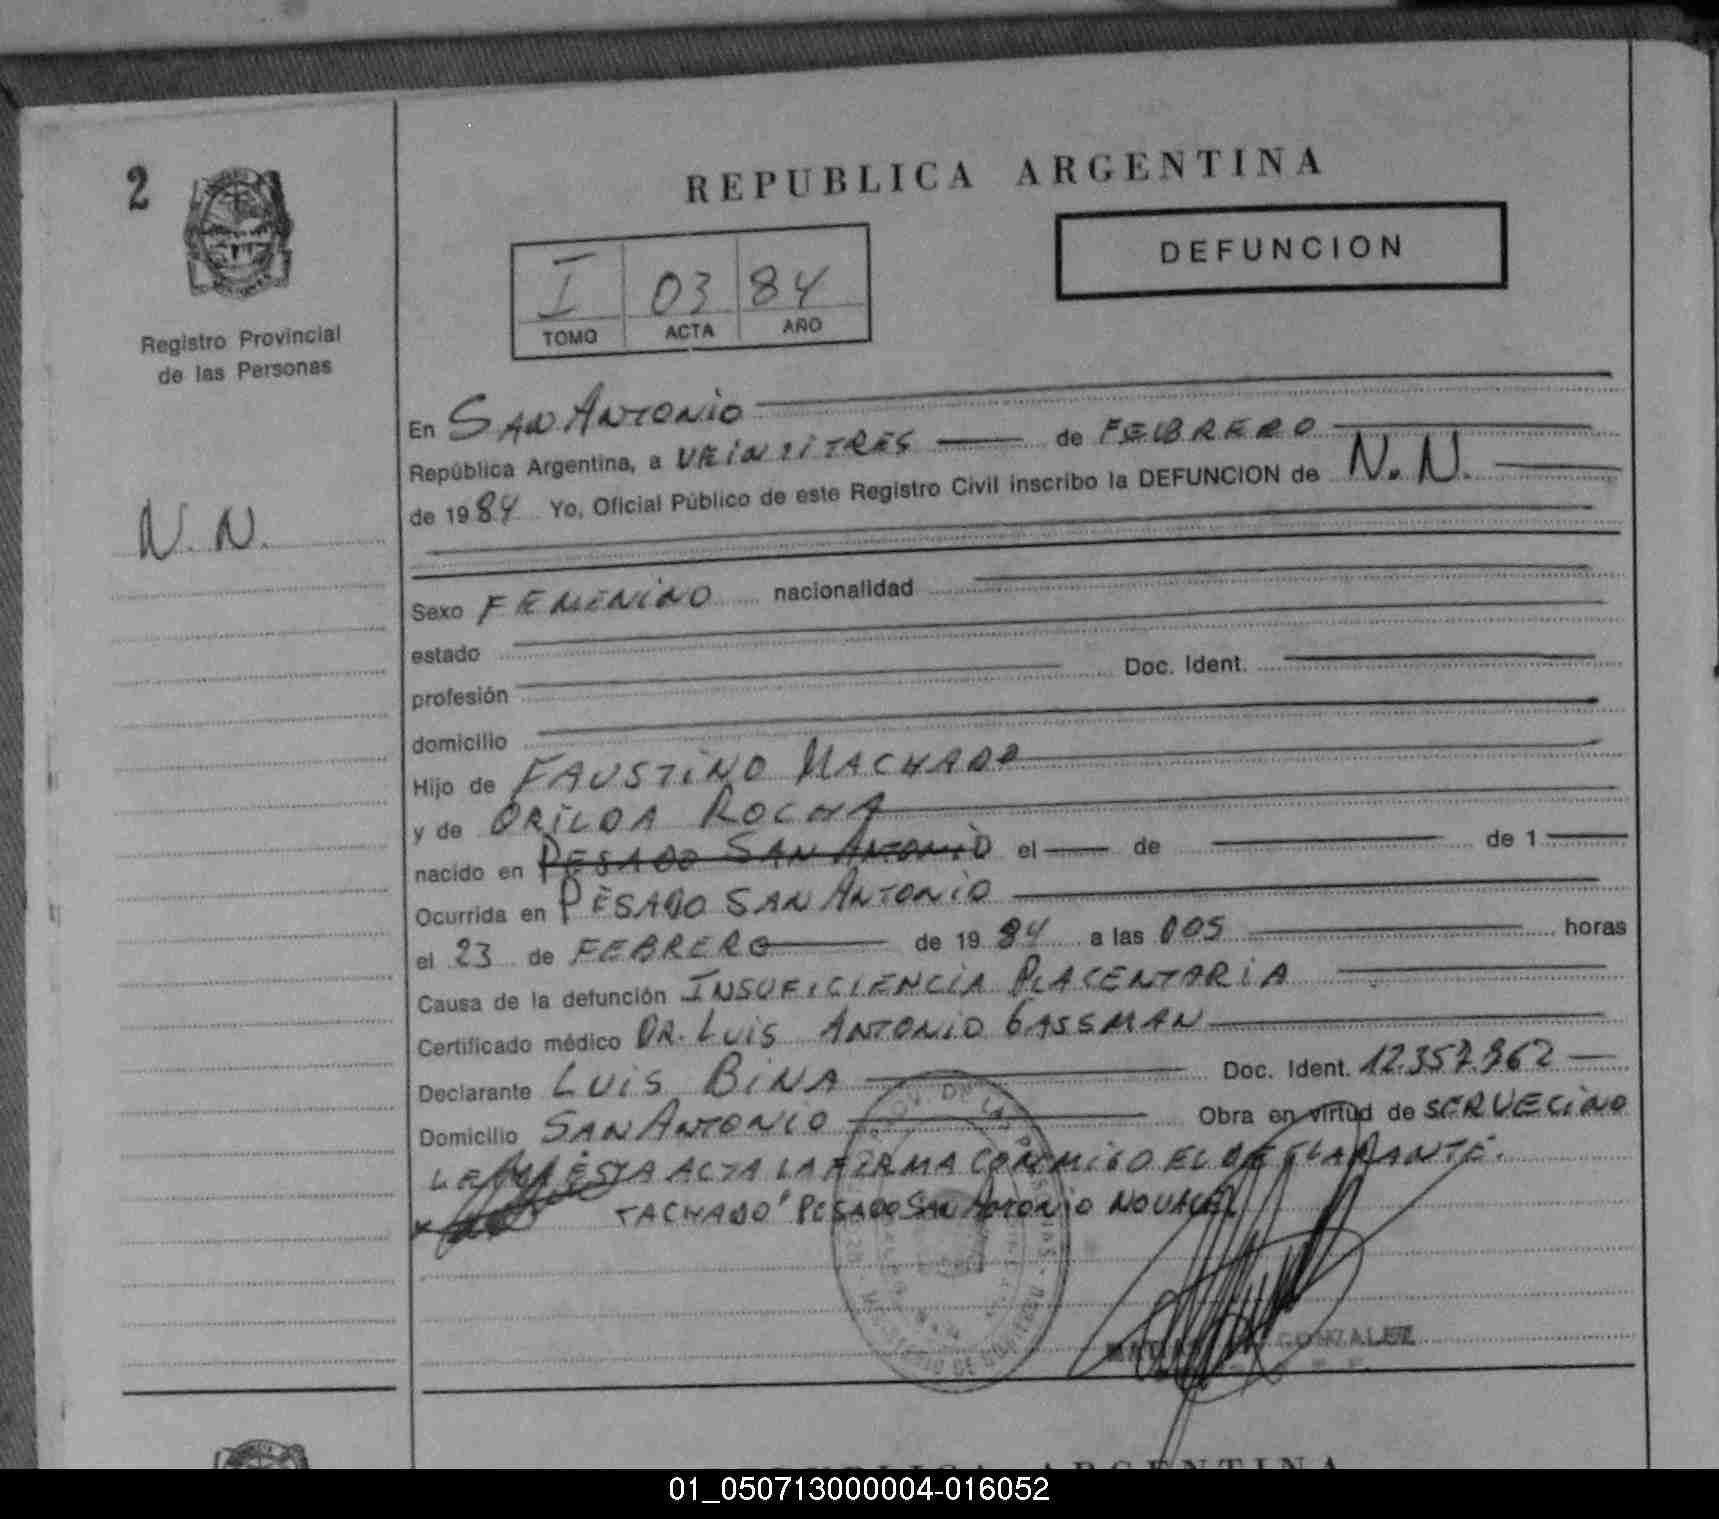 2
REPUBLICA ARGENTINA
DEFUNCION
I 03 84
TOMO ACTA AÑO
Registro Provincial
de las Personas
N.N.
En SAN ANTONIO
República Argentina, a VEINTITRES de FEBRERO
de 1984 Yo, Oficial Público de este Registro Civil inscribo la DEFUNCION de N.N.
Sexo FEMENINO nacionalidad
estado
profesión Doc. Ident.
domicilio
Hijo de FAUSTINO MACHADO
y de ORILDA ROCHA
nacido en PESADO SAN ANTONIO el de de 1
Ocurrida en PESADO SAN ANTONIO
el 23 de FEBRERO de 19 84 a las DOS horas
Causa de la defunción INSUFICIENCIA PLACENTARIA
Certificado médico DR. LUIS ANTONIO GASSMAN
Declarante LUIS BINA Doc. Ident. 12.357.962
Domicilio SAN ANTONIO Obra en virtud de SER VECINO
ESTA ACTA LA FIRMA CONMIGO EL DECLARANTE.
TACHADO "PESADO SAN ANTONIO NO VALE
GONZALEZ
REPUBLICA ARGENTINA
01_050713000004-016052